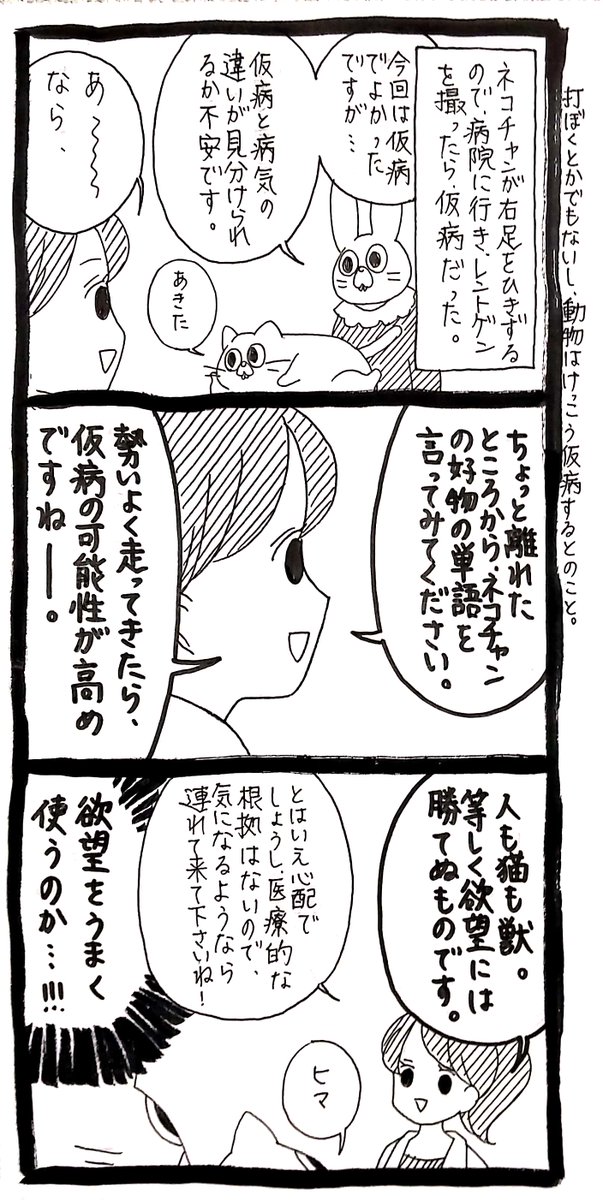 打ぼくとかでもないし、動物はけっこう仮病するとのこと。
ネコチャンが右足をひきずる
ので、病院に行き、レントゲン
を撮ったら、仮病だった。
今回は仮病
でよかった
ですが…
仮病と病気の
違いが見分けられ
るか不安です。
あきた
あ〜〜〜
なら、
ちょっと離れた
ところから、ネコチャン
の好物の単語を
言ってみてください。
勢いよく走ってきたら、
仮病の可能性が高め
ですねー。
人も猫も獣。
等しく欲望には
勝てぬものです。
とはいえ心配で
しょうし、医療的な
根拠はないので、
気になるようなら
連れて来て下さいね!
ヒマ
欲望をうまく
使うのか…!!!